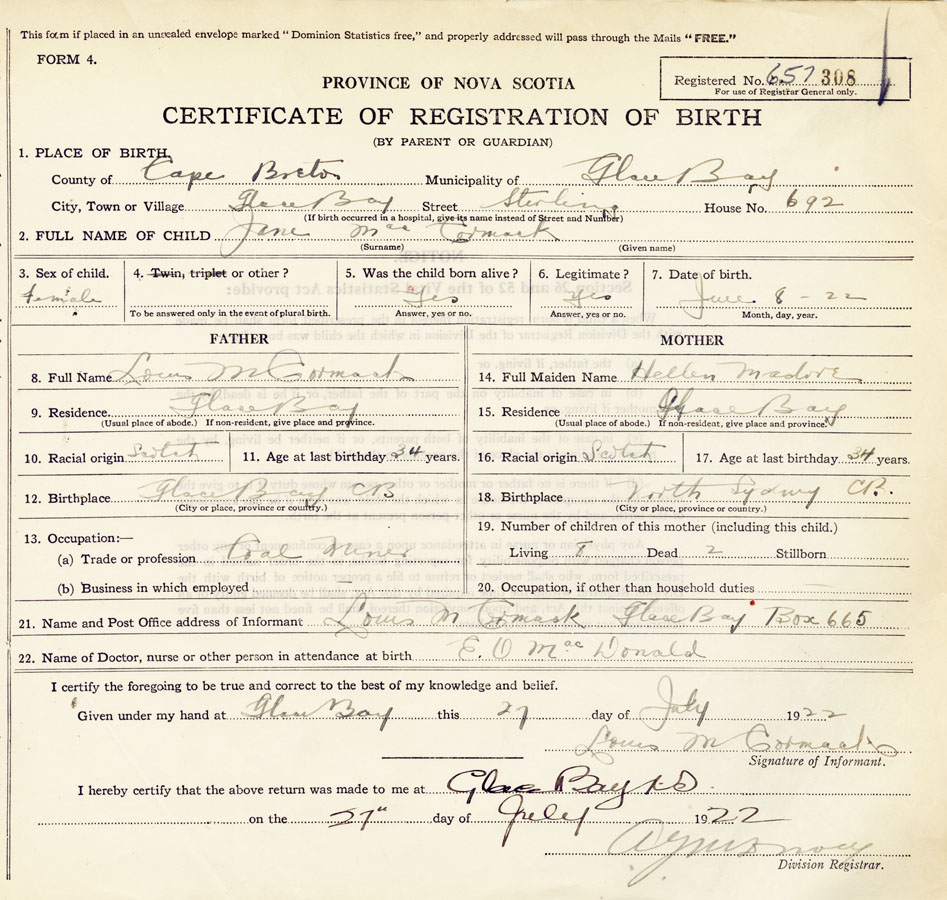 This form if placed in an unsealed envelope marked "Dominion Statistics free," and properly addressed will pass through the Mails "FREE."
FORM 4.
Registered No. 657 308
For use of Registrar General only.
PROVINCE OF NOVA SCOTIA
CERTIFICATE OF REGISTRATION OF BIRTH
(BY PARENT OR GUARDIAN)
1. PLACE OF BIRTH
County of Cape Breton Municipality of Glace Bay
City, Town or Village Glace Bay Street Sterling House No. 692
(If birth occurred in a hospital, give its name instead of Street and Number)
2. FULL NAME OF CHILD Jane Mac Cormack
(Surname) (Given name)
3. Sex of child. 4. Twin, triplet or other? 5. Was the child born alive? 6. Legitimate? 7. Date of birth.
female Yes Yes June 8 - 22
To be answered only in the event of plural birth. Answer, yes or no. Answer, yes or no. Month, day, year.
FATHER MOTHER
8. Full Name Louis McCormack 14. Full Maiden Name Hellen Madore
9. Residence. Glace Bay 15. Residence Glace Bay
(Usual place of abode.) If non-resident, give place and province. (Usual place of abode.) If non-resident, give place and province.
10. Racial origin Scotch 11. Age at last birthday 34 years. 16. Racial origin Scotch 17. Age at last birthday 34 years.
12. Birthplace Glace Bay CB 18. Birthplace North Sydney CB.
(City or place, province or country.) (City or place, province or country.)
13. Occupation:— 19. Number of children of this mother (including this child.)
(a) Trade or profession Coal Miner Living 8 Dead 2 Stillborn
(b) Business in which employed 20. Occupation, if other than household duties
21. Name and Post Office address of Informant Louis McCormack Glace Bay Box 665
22. Name of Doctor, nurse or other person in attendance at birth E. O MacDonald
I certify the foregoing to be true and correct to the best of my knowledge and belief.
Given under my hand at Glace Bay this 27 day of July 1922
Louis McCormack
Signature of Informant.
I hereby certify that the above return was made to me at Glace Bay N.S.
on the 27" day of July 1922
Division Registrar.